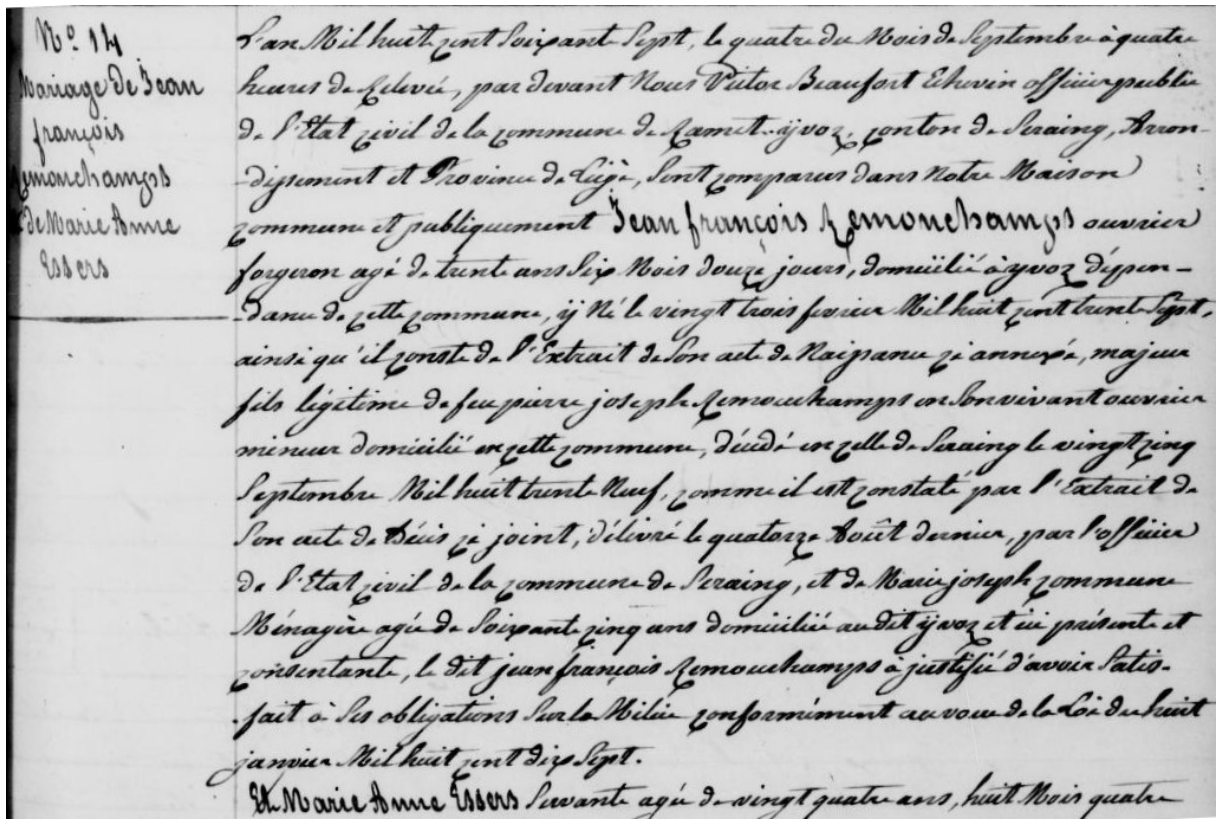 Nº 14
Mariage de Jean
françois
Remouchamps
& de Marie Anne
Essers
L'an Mil huit cent Soixante Sept, le quatre du Mois de Septembre à quatre
heures de Relevée, par devant Nous Victor Beaufort Echevin officier public
de l'Etat civil de la commune de Ramet-yvoz, canton de Seraing, Arron-
-dissement et Province de Liége, Sont comparus dans Notre Maison
commune et publiquement Jean françois Remouchamps ouvrier
forgeron agé de trente ans Six Mois douze jours, domicilié à yvoz dépen-
-dance de cette commune, y Né le vingt trois fevrier Mil huit cent trente Sept,
ainsi qu'il conste de l'Extrait de Son acte de Naissance ci annexée, majeur
fils légitime de feu pierre joseph Remouchamps en Son vivant ouvrier
mineur domicilié en cette commune, décédé en celle de Seraing le vingt cinq
Septembre Mil huit trente Neuf, comme il est constaté par l'Extrait de
Son acte de Décès ci joint, délivré le quatorze Août dernier, par l'officier
de l'Etat civil de la commune de Seraing, et de Marie joseph commune
Ménagère agée de Soixante cinq ans domiciliée au dit yvoz et ici présente et
consentante, le dit jean françois Remouchamps à justifié d'avoir Satis-
-fait à Ses obligations Sur la Milice conformément au voeu de la Loi du huit
janvier Mil huit cent dix Sept.
Et Marie Anne Essers Servante agée de vingt quatre ans, huit Mois quatre